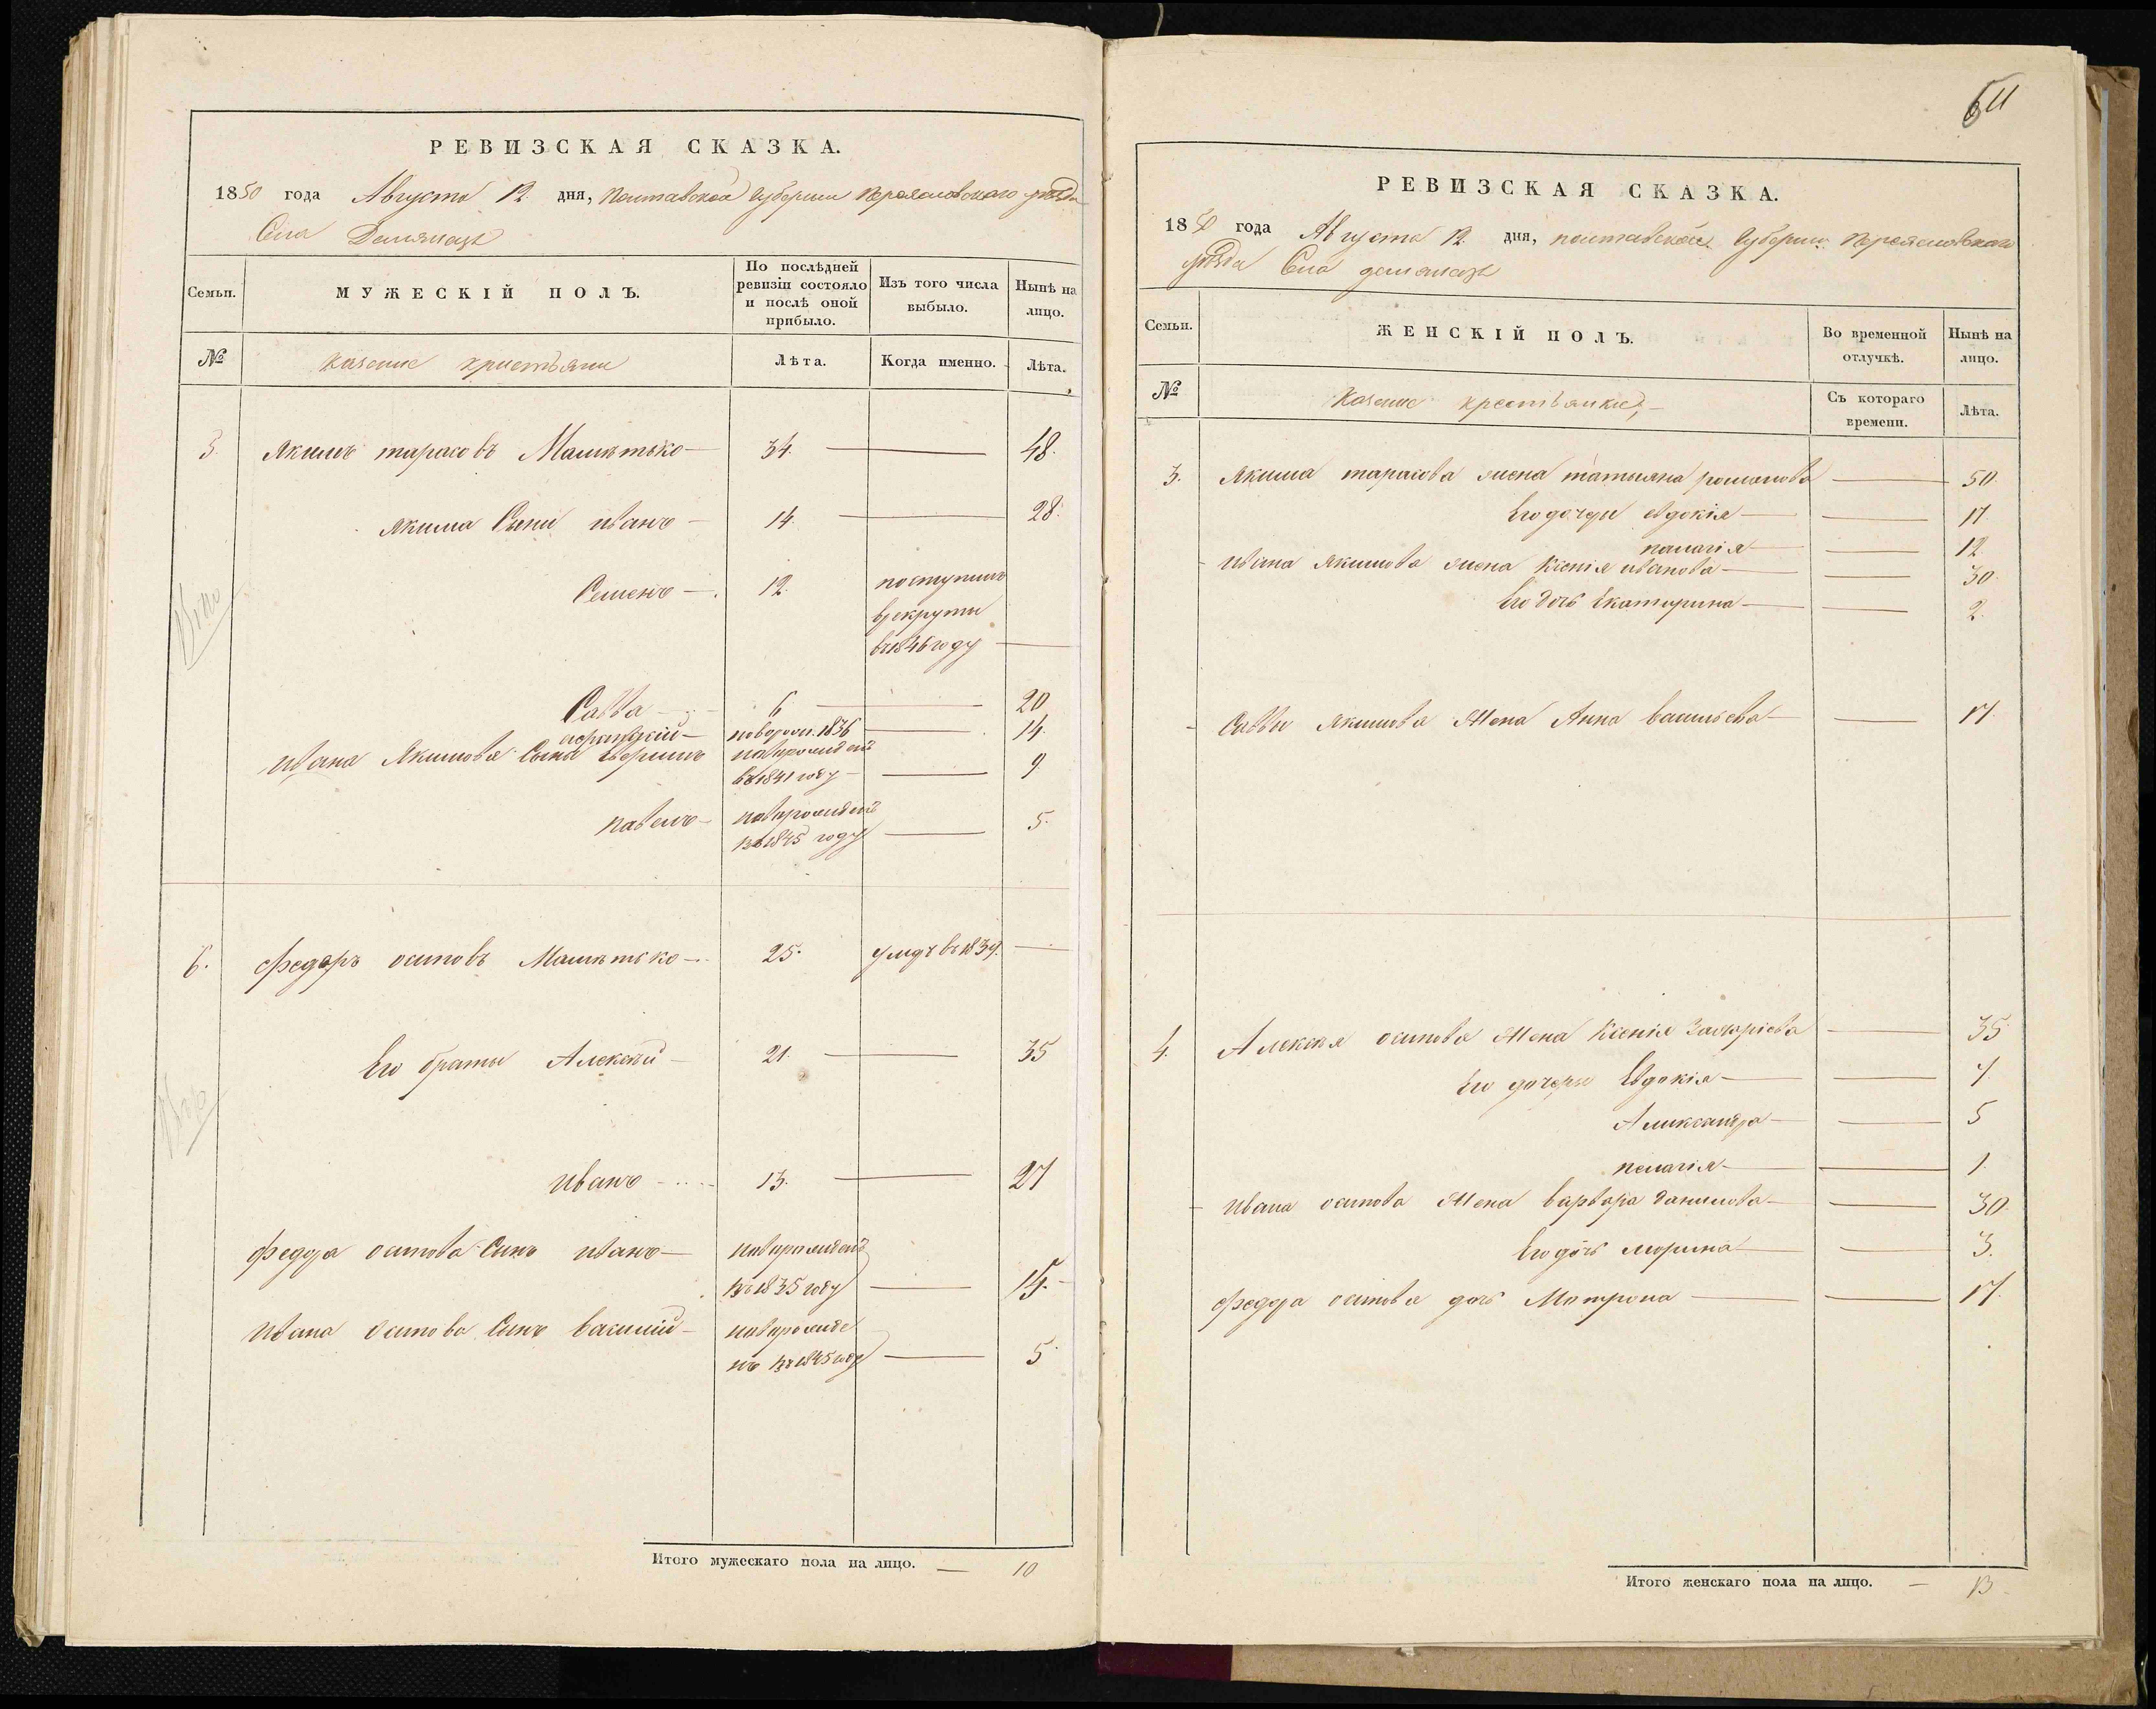 РЕВИЗСКАЯ СКАЗКА.
1850 года Августа 12. дня, Полтавской Губернии Переясловского уезда
Села Демянецъ
Семьи.
МУЖЕСКІЙ ПОЛЪ.
По послѣдней ревизіи состояло и послѣ оной прибыло.
Изъ того числа выбыло.
Нынѣ на лицо.
№
казеные
Лѣта.
Когда именно.
Лѣта.
Якимъ тарасовъ 34. — 48.
Якима Сыни иванъ — 14. — 28.
Семенъ — 12. поступилъ
в рекруты
въ 1846 году —
Савва — 6 — 20
новорож. 1836 — 14.
ивана Якимова Сыны новорожденъ
въ 1841 году — 9
павелъ — новорожденъ
въ 1845 году — 5.
6. Федоръ осиповъ 25. умдъ въ 1839. —
Его браты Алексѣй — 21. — 35
иванъ — 13. — 27
Федора осипова Сынъ иванъ — новорожденъ
въ 1835 году — 15.
ивана осипова Сынъ василій — новорожде
нъ въ 1845 году — 5
Итого мужескаго пола на лицо. — 10
РЕВИЗСКАЯ СКАЗКА.
1850 года Августа 12. дня, полтавской Губернии Переясловского
уезда Села демянецъ
Семьи.
ЖЕНСКІЙ ПОЛЪ.
Во временной отлучкѣ.
Нынѣ на лицо.
№
Казеные крестьянки,
Съ котораго времени.
Лѣта.
3. Якима тарасова жена татьяна романова — 50.
Его дочери евдокія — 17
палагія — 12
ивана Якимова жена Ксенія иванова — 30.
Его дочь Екатерина — 2.
Саввы Якимова Жена Анна васильева — 17.
4. Алексея осипова Жена Ксенія Захаріева — 35
Его дочеры Евдокія — 7
Александра — 5
пелагія — 1.
ивана осипова Жена варвара данилова — 30.
Его дочь марина — 3.
Федора осипова дочь Матрона — 17.
Итого женскаго пола на лицо. — 13